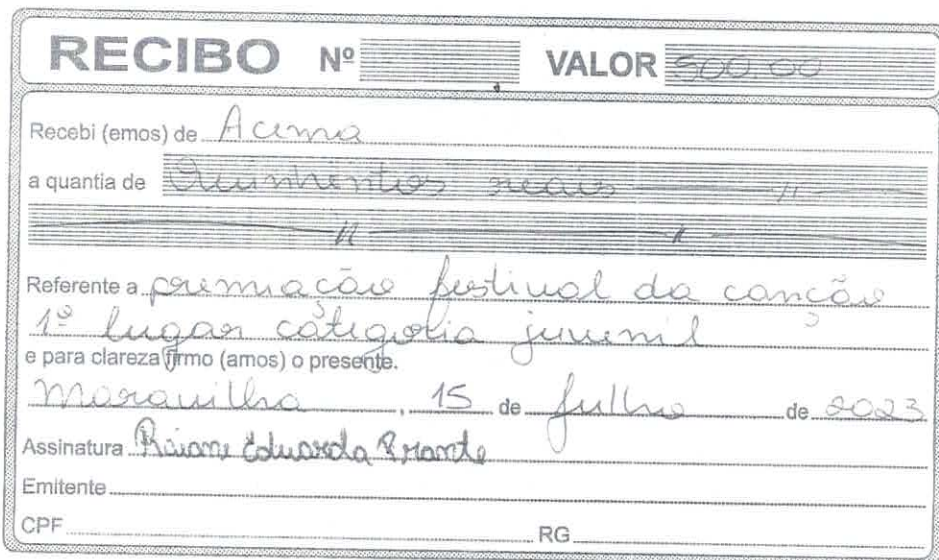 RECIBO Nº VALOR 500.00
Recebi (emos) de Acema
a quantia de Quinhentos reais
Referente a premiação festival da canção
1º lugar categoria juvenil
e para clareza firmo (amos) o presente.
Maravilha, 15 de julho de 2023
Assinatura Raiane Eduarda
Emitente
CPF RG